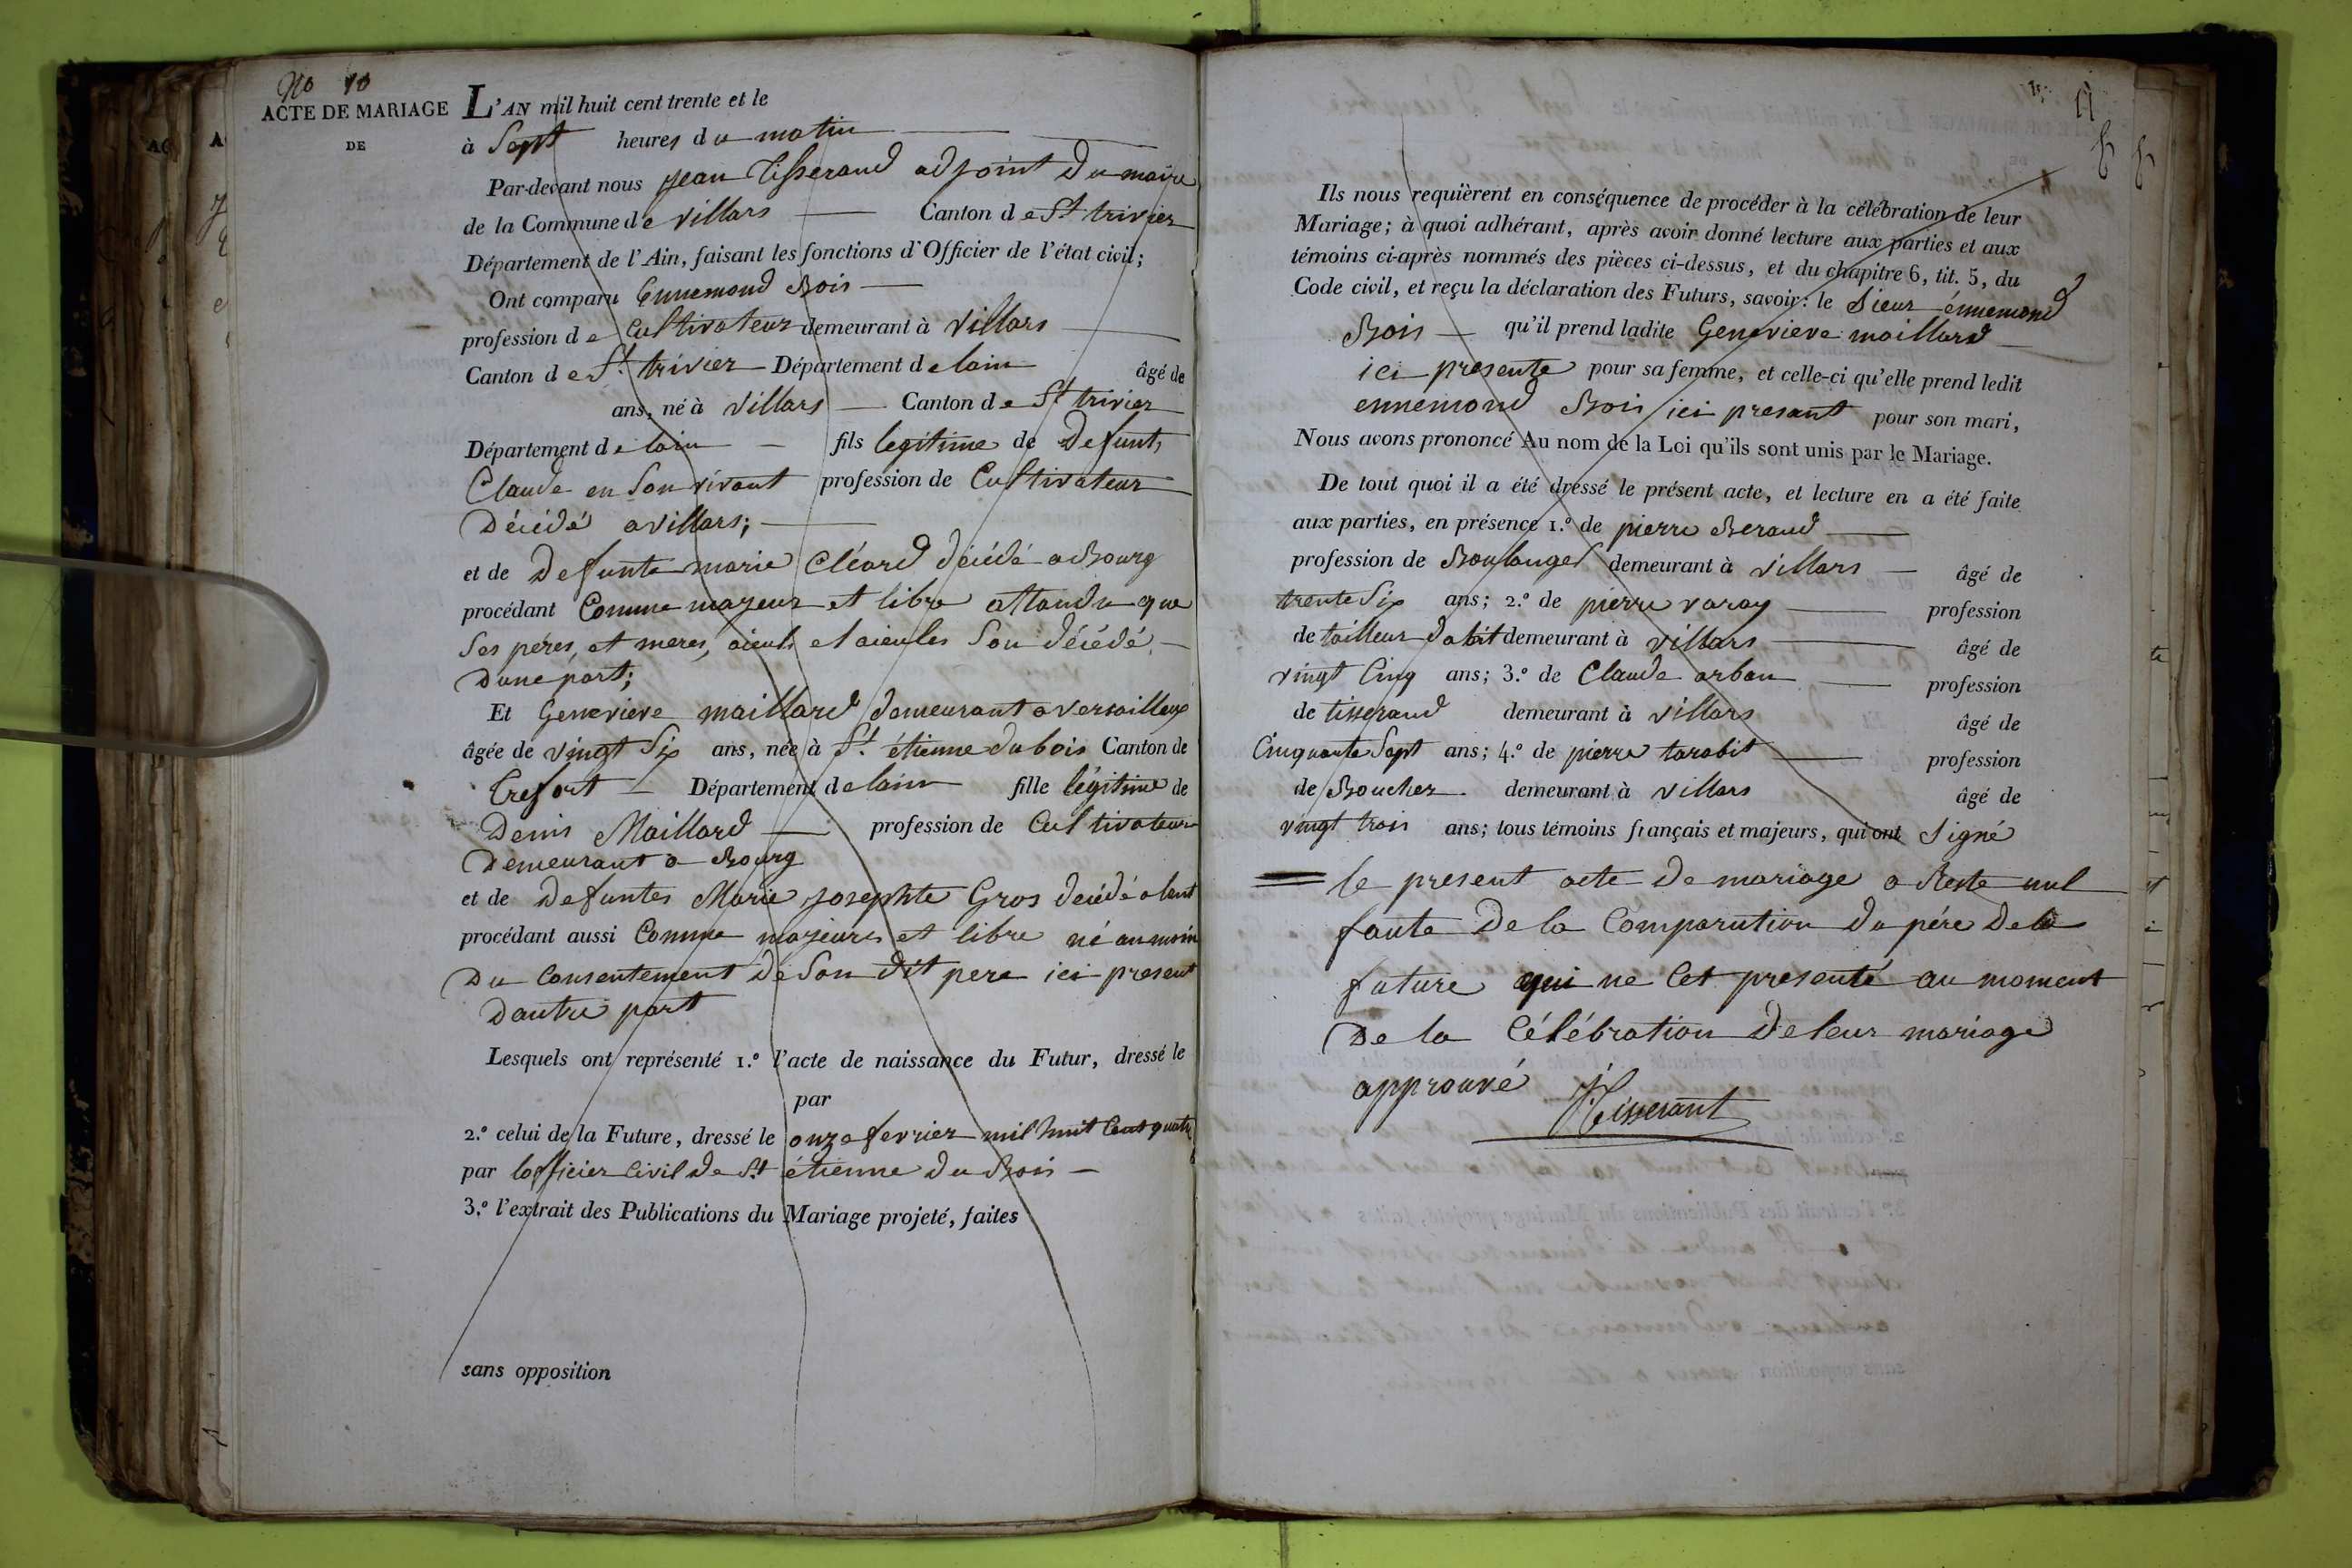 No 10
ACTE DE MARIAGE
DE
L'AN mil huit cent trente et le
à Sept heures du matin
Par-devant nous Jean Tisserand adjoint du maire
de la Commune de villars — Canton de St trivier
Département de l'Ain, faisant les fonctions d'Officier de l'état civil;
Ont comparu Ennemond Bois —
profession de Cultivateur demeurant à Villars
Canton de St. trivier Département de lain âgé de
ans, né à Villars — Canton de St trivier
Département de lain — fils legitime de Defunts
Claude en Son vivant profession de Cultivateur
Décédé a villars;
et de Defunte marie Cléard décédé a Bourg
procédant Comme mayeur et libre attandu que
Ses péres, et meres, aieuls et aieules Son décédé
Dune part;
Et Genevieve maillard demeurant a versailleux
âgée de vingt Six ans, née à St. étienne du bois Canton de
Trefort — Département de lain fille légitime de
Denis Maillard — profession de Cultivateur
Demeurant a Bourg
et de Defuntes Marie Josephte Gros decédé a lent
procédant aussi Comme majeure et libre né anmoin
Du Consentement de Son dit pere ici present
Dautre part
Lesquels ont représenté 1.º l'acte de naissance du Futur, dressé le
par
2.º celui de la Future, dressé le onze fevrier mil huit Cent quatre
par lofficier Civil de St étienne du Bois —
3.º l'extrait des Publications du Mariage projeté, faites
sans opposition
11
Ils nous requièrent en conséquence de procéder à la célébration de leur
Mariage; à quoi adhérant, après avoir donné lecture aux parties et aux
témoins ci-après nommés des pièces ci-dessus, et du chapitre 6, tit. 5, du
Code civil, et reçu la déclaration des Futurs, savoir: le Sieur énnemond
Bois — qu'il prend ladite Genevieve maillard
ici presente pour sa femme, et celle-ci qu'elle prend ledit
ennemond Bois ici presant pour son mari,
Nous avons prononcé Au nom de la Loi qu'ils sont unis par le Mariage.
De tout quoi il a été dressé le présent acte, et lecture en a été faite
aux parties, en présence 1.º de pierre Beraud
profession de Boulanger demeurant à villars — âgé de
trente Six ans; 2.º de pierre varay profession
de tailleur dabit demeurant à villars âgé de
vingt Cinq ans; 3.º de Claude arban profession
de tisserand demeurant à villars âgé de
Cinquante Sept ans; 4.º de pierre tarabit profession
de Boucher demeurant à villars âgé de
vingt trois ans; tous témoins français et majeurs, qui ont Signé
le present acte de mariage a Resté nul
faute De la Comparution du pére De la
future qui ne Cet presenté au moment
De la Célébration De leur mariage
approuvé JTisserant